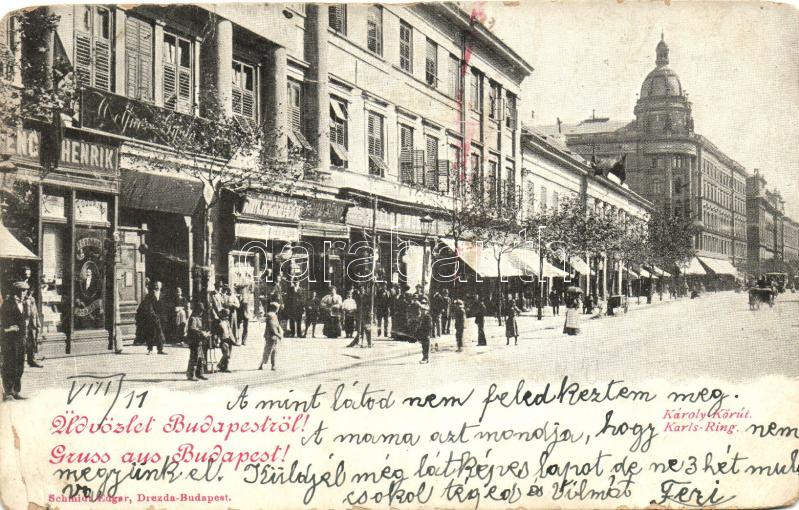 HENRIK
darabanth.com
VIII/11
A mint látod nem feledkeztem meg.
Üdvözlet Budapestről!
Károly-Körút.
Karls-Ring.
A mama azt mondja, hogy nem
Gruss aus Budapest!
megyünk el. Küldjél még látképes lapot de ne 3 hét mul
va
csokol téged és Vilmát Feri
Schmidt Edgar, Drezda-Budapest.